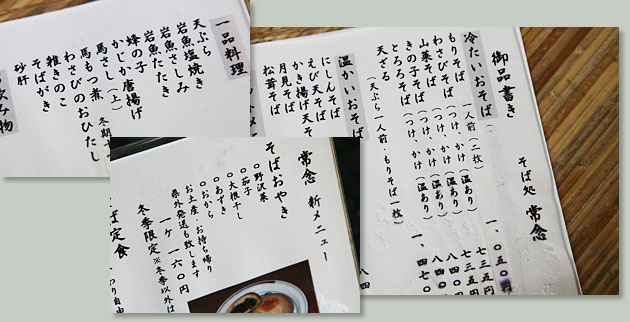 一品料理
天ぷら
岩魚塩焼き
岩魚さしみ
岩魚たたき
蜂の子
かじか唐揚げ
馬さし(上)
馬もつ煮
わさびのおひたし
雑きのこ
そばがき
砂肝
飲み物
御品書き
そば処 常念
冷たいおそば
もりそば 一人前(二枚) 一、〇五〇円
わさびそば(つけ、かけ)(温あり)
山菜そば(つけ、かけ)(温あり)
とろろそば(つけ、かけ)(温あり)
天ざる
(天ぷら一人前・もりそば一枚)
温かいおそば
にしんそば
えび天そば
かき揚げ天そ
月見そば
松茸そば
常念 新メニュー
そばおやき
○野沢菜
○茄子
○大根干し
○あずき
○おから
お土産、お持ち帰り
県外発送も致します
一ケ 一六〇円
冬季限定※冬季以外は
ば定食